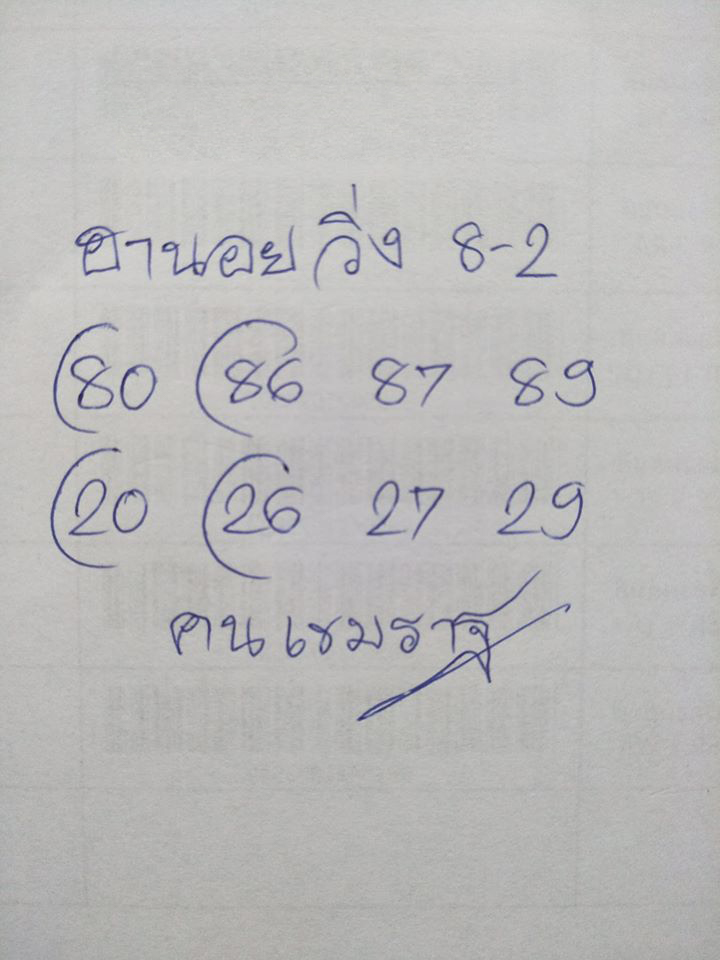 ฮานอย วิ่ง 8-2
80 86 87 89
20 26 27 29
คนเขมราฐ